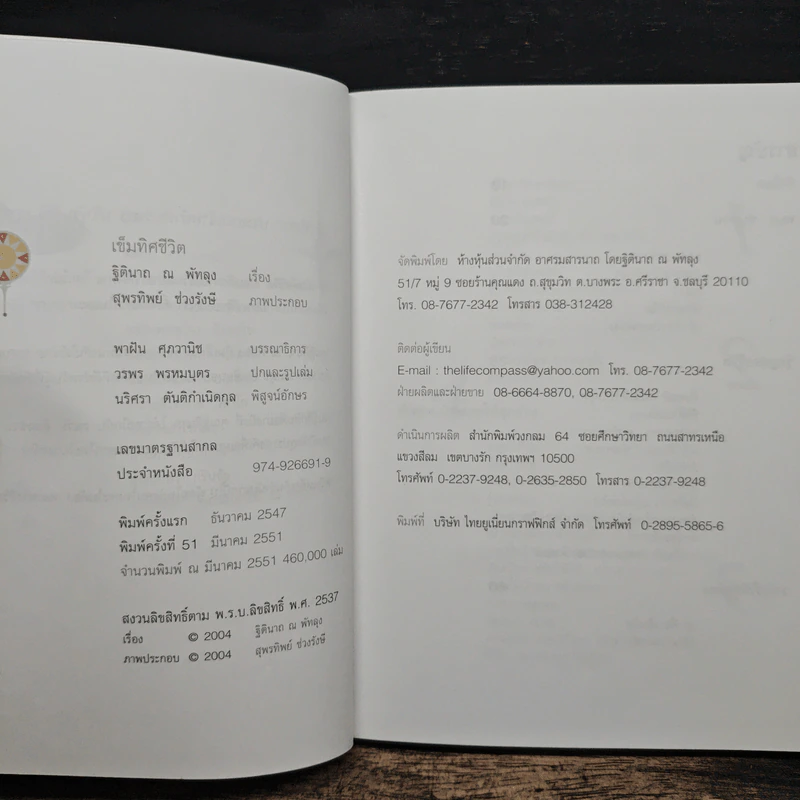 เข็มทิศชีวิต
ฐิตินาถ ณ พัทลุง เรื่อง
สุพรทิพย์ ช่วงรังษี ภาพประกอบ
พาฝัน ศุภวานิช บรรณาธิการ
วรพร พรหมบุตร ปกและรูปเล่ม
นริศรา ตันติกำเนิดกุล พิสูจน์อักษร
เลขมาตรฐานสากล
ประจำหนังสือ 974-926691-9
พิมพ์ครั้งแรก ธันวาคม 2547
พิมพ์ครั้งที่ 51 มีนาคม 2551
จำนวนพิมพ์ ณ มีนาคม 2551 460,000 เล่ม
สงวนลิขสิทธิ์ตาม พ.ร.บ.ลิขสิทธิ์ พ.ศ. 2537
เรื่อง © 2004 ฐิตินาถ ณ พัทลุง
ภาพประกอบ © 2004 สุพรทิพย์ ช่วงรังษี
จัดพิมพ์โดย ห้างหุ้นส่วนจำกัด อาศรมสารนาถ โดยฐิตินาถ ณ พัทลุง
51/7 หมู่ 9 ซอยร้านคุณแดง ถ.สุขุมวิท ต.บางพระ อ.ศรีราชา จ.ชลบุรี 20110
โทร. 08-7677-2342 โทรสาร 038-312428
ติดต่อผู้เขียน
E-mail : thelifecompass@yahoo.com โทร. 08-7677-2342
ฝ่ายผลิตและฝ่ายขาย 08-6664-8870, 08-7677-2342
ดำเนินการผลิต สำนักพิมพ์วงกลม 64 ซอยศึกษาวิทยา ถนนสาทรเหนือ
แขวงสีลม เขตบางรัก กรุงเทพฯ 10500
โทรศัพท์ 0-2237-9248, 0-2635-2850 โทรสาร 0-2237-9248
พิมพ์ที่ บริษัท ไทยยูเนี่ยนกราฟฟิกส์ จำกัด โทรศัพท์ 0-2895-5865-6